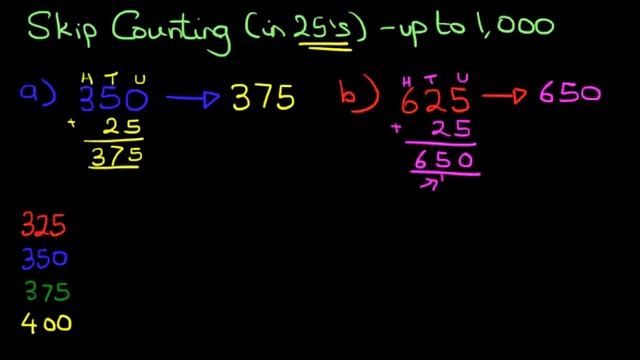 Skip Counting (in 25's) - up to 1,000
H T U
a) 350 → 375
+ 25
375
H T U
b) 625 → 650
+ 25
650
1
325
350
375
400